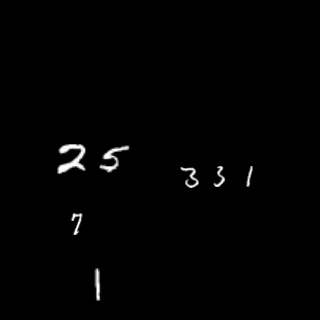 25
331
7
1